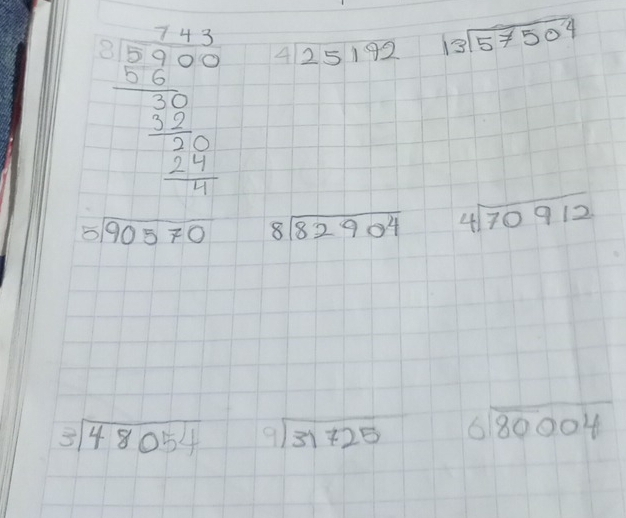 743
8)5900 4)25192 13)57504
56
30
32
20
24
4
5)90570 8)82904 4)70912
3)48054 9)31725 6)80004